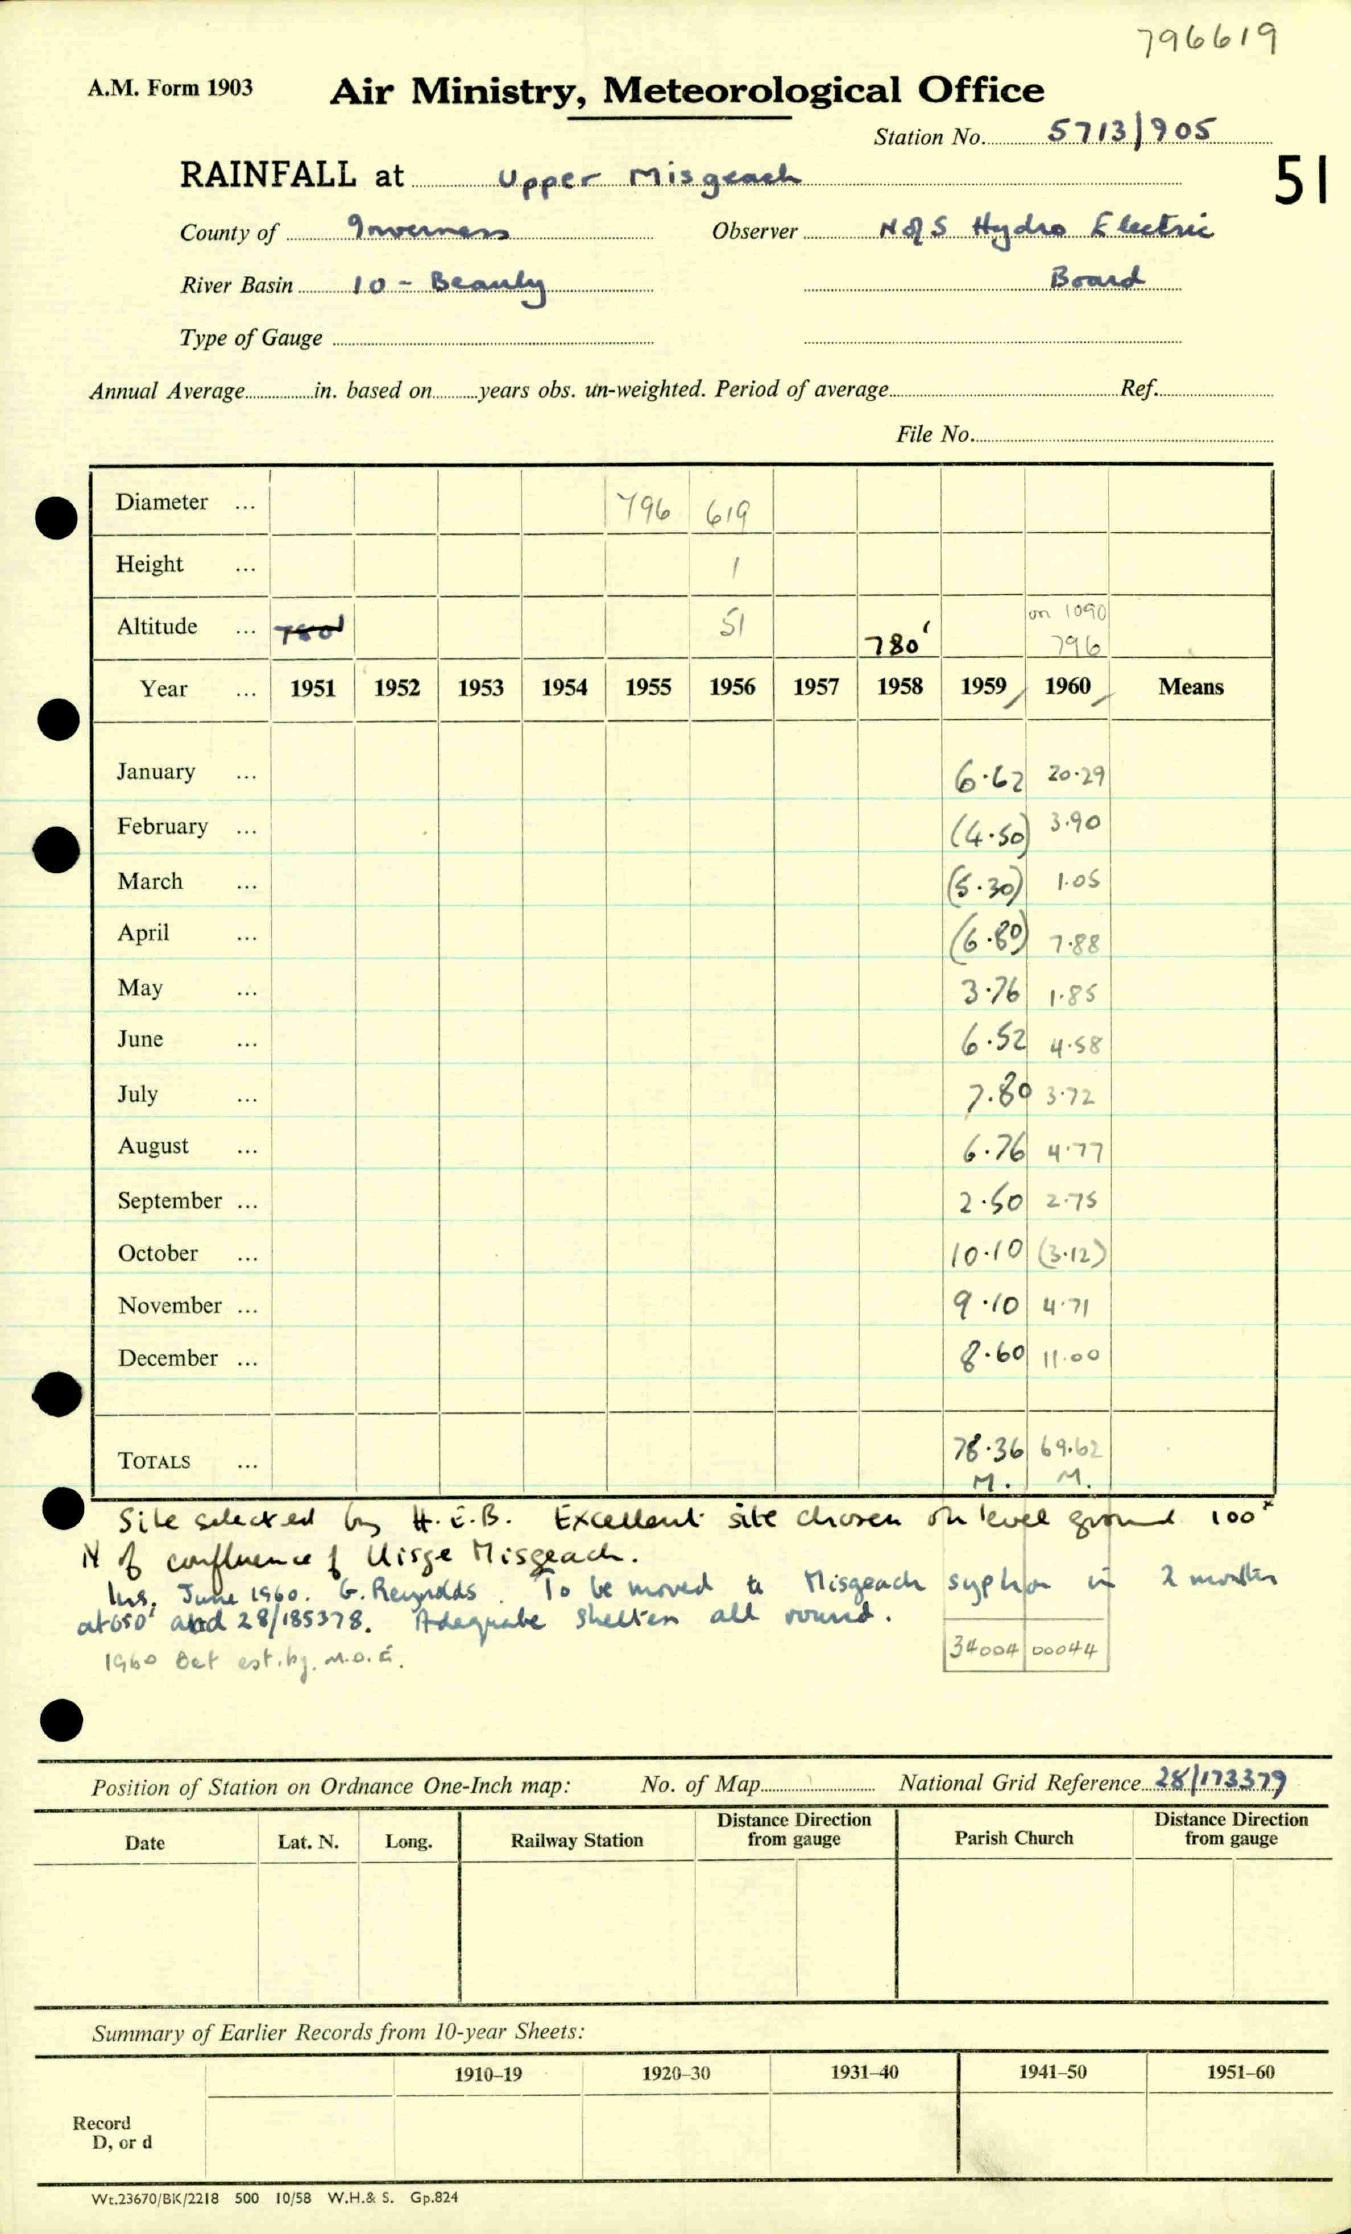 796619
A.M. Form 1903 Air Ministry, Meteorological Office
Station No. 5713/905
RAINFALL at Upper Misgeach 51
County of Inverness Observer N of S Hydro Electric
River Basin 10 - Beauly Board
Type of Gauge
Annual Average in. based on years obs. un-weighted. Period of average Ref.
File No.
Diameter ... 796 619
Height ... 1
on 1090
Altitude ... 780' 51 780' 796
Year ... 1951 1952 1953 1954 1955 1956 1957 1958 1959 1960 Means
January ... 6.62 20.29
February ... (4.50) 3.90
March ... (5.30) 1.05
April ... (6.80) 7.88
May ... 3.76 1.85
June ... 6.52 4.58
July ... 7.80 3.72
August ... 6.76 4.77
September ... 2.50 2.75
October ... 10.10 (3.12)
November ... 9.10 4.71
December ... 8.60 11.00
TOTALS ... 78.36 69.62
M. M.
Site selected by H.E.B. Excellent site chosen on level ground 100x
N of confluence of Uisge Misgeach.
Ins. June 1960. G. Reynolds. To be moved to Misgeach syphon in 2 months
at 650' and 28/185378. Adequate shelter all round.
1960 Oct est. by M.O.E. 34004 00044
Position of Station on Ordnance One-Inch map: No. of Map National Grid Reference 28/173379
Date Lat. N. Long. Railway Station Distance Direction from gauge Parish Church Distance Direction from gauge
Summary of Earlier Records from 10-year Sheets:
1910–19 1920–30 1931–40 1941–50 1951–60
Record
D, or d
Wt.23670/BK/2218 500 10/58 W.H.& S. Gp.824